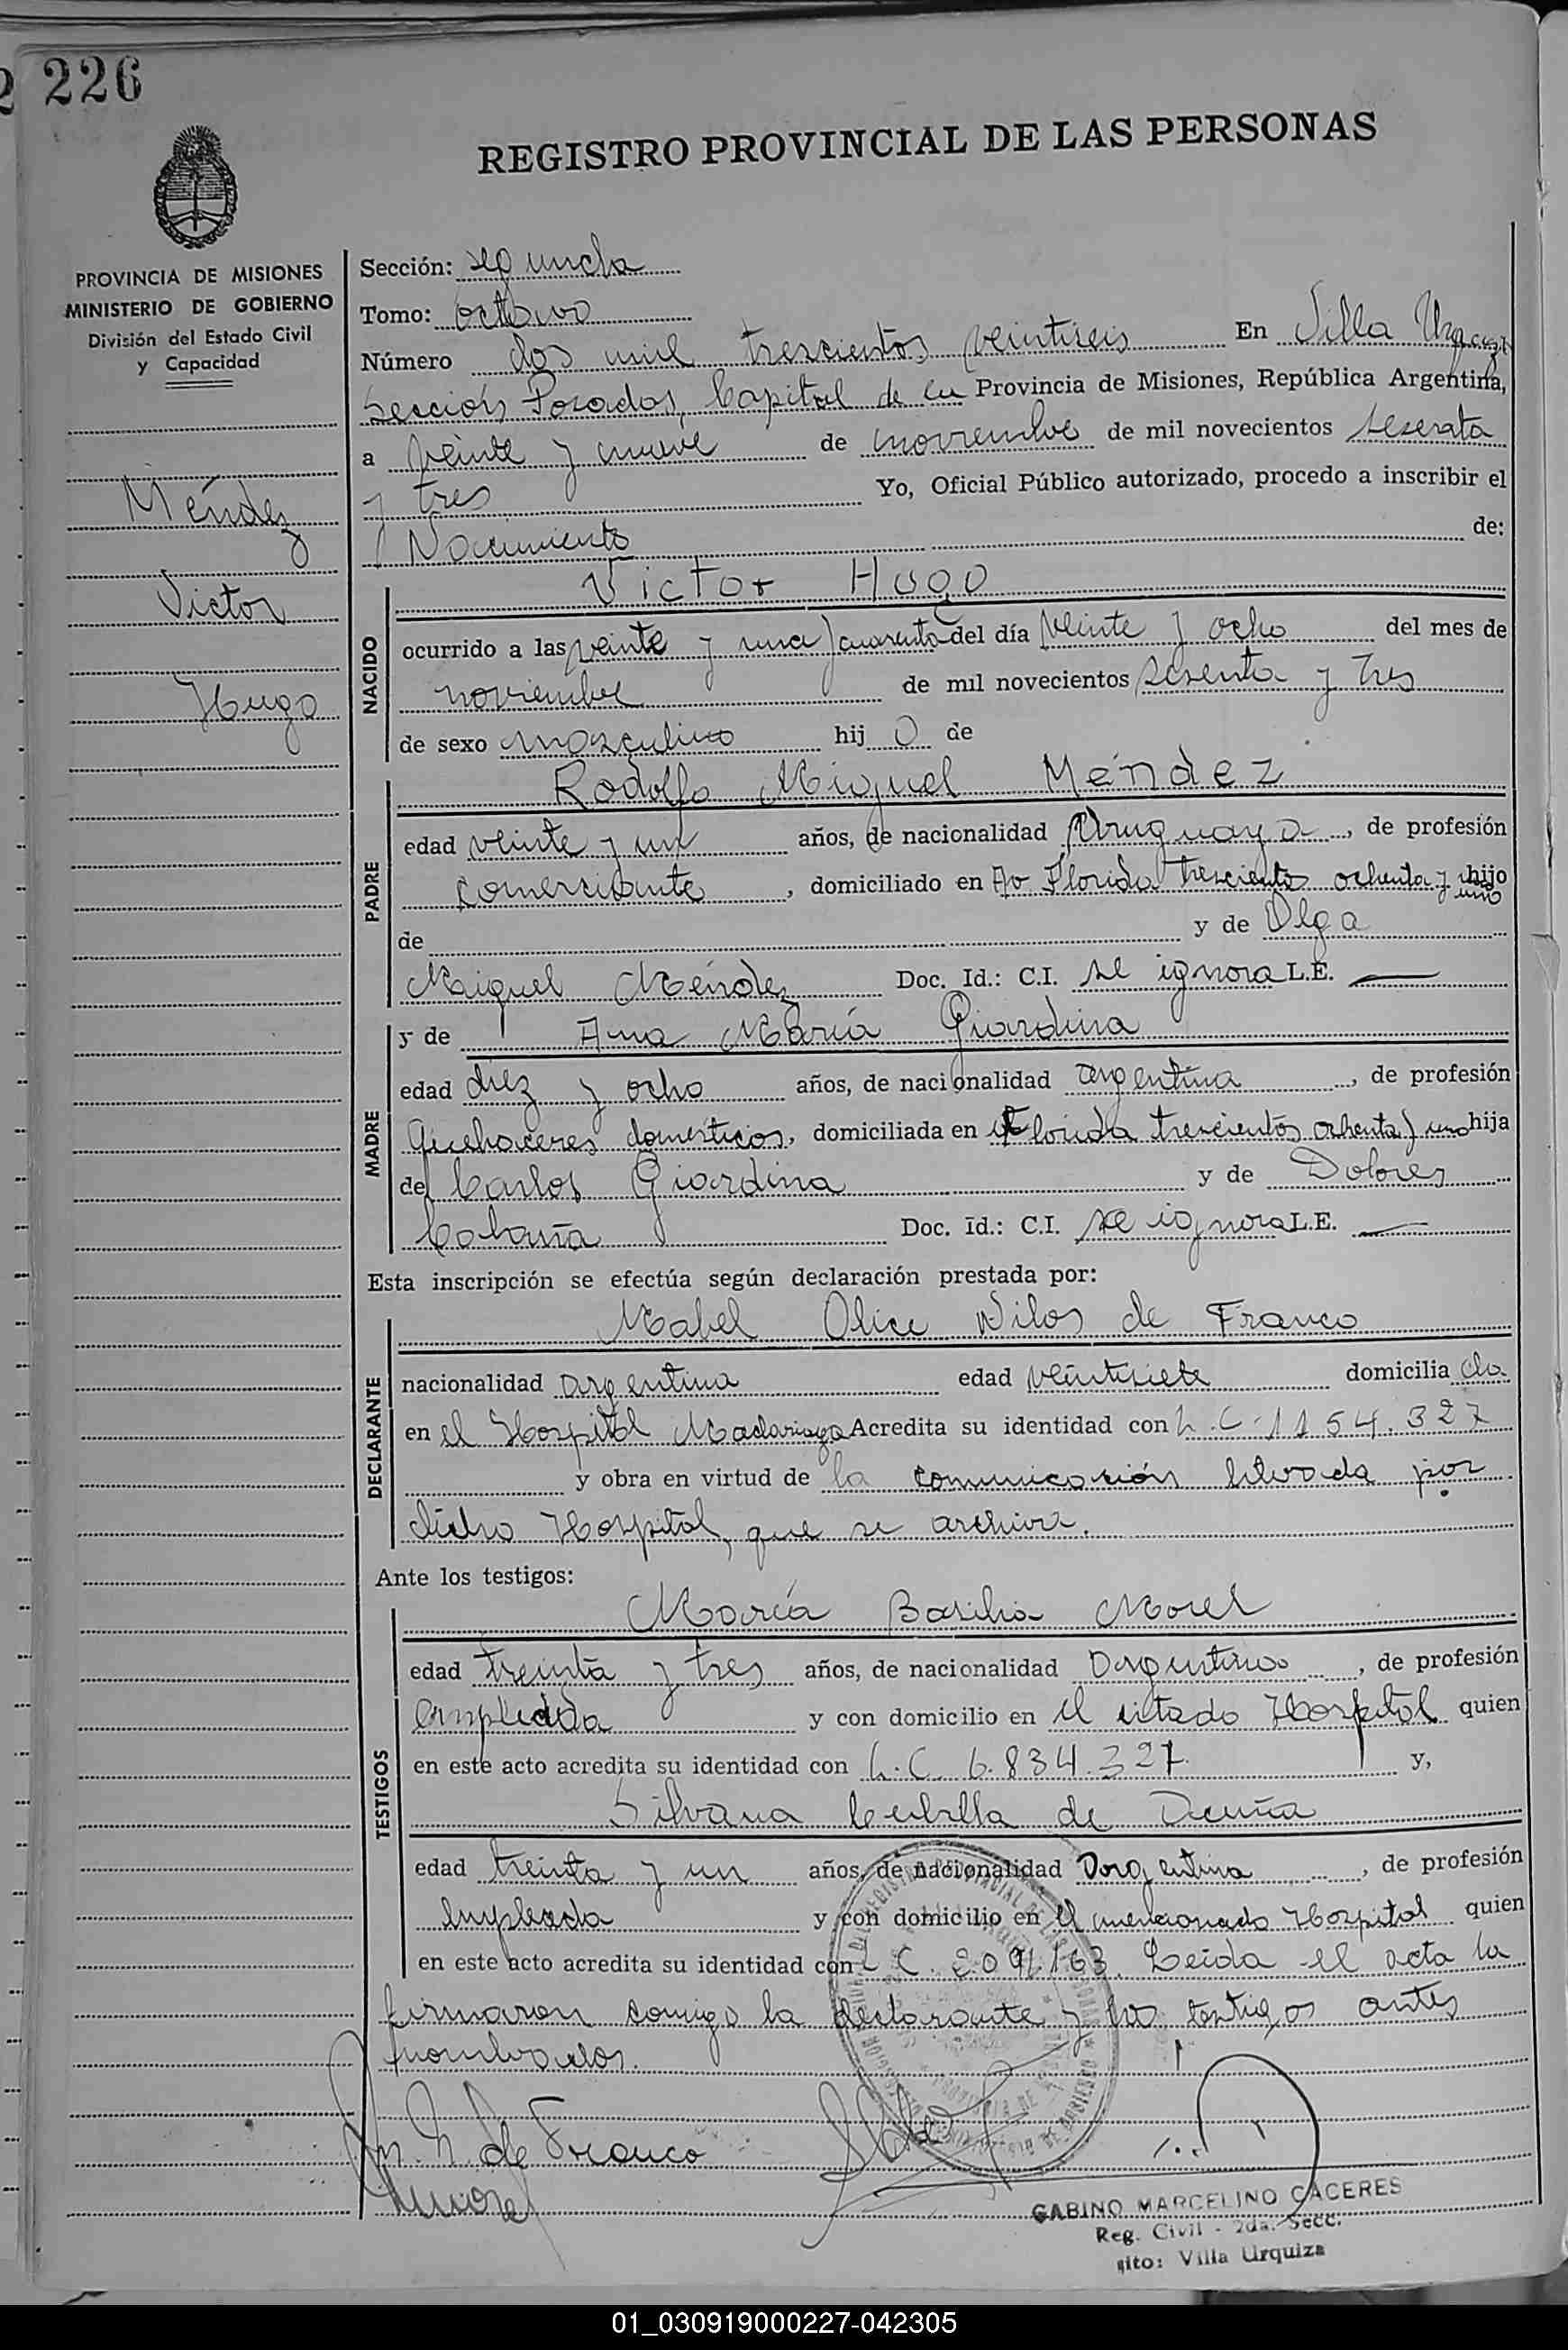 226
REGISTRO PROVINCIAL DE LAS PERSONAS
PROVINCIA DE MISIONES
MINISTERIO DE GOBIERNO
División del Estado Civil
y Capacidad
Méndez
Victor
Hugo
Sección: segunda
Tomo: octavo
Número dos mil trescientos veintiseis En Villa Urquiza
Sección Posadas, Capital de la Provincia de Misiones, República Argentina,
a veinte y nueve de noviembre de mil novecientos sesenta
y tres Yo, Oficial Público autorizado, procedo a inscribir el
Nacimiento de:
NACIDO
Victor Hugo
ocurrido a las veinte y una y cuarenta del día veinte y ocho del mes de
noviembre de mil novecientos sesenta y tres
de sexo masculino hij o de
PADRE
Rodolfo Miguel Méndez
edad veinte y un años, de nacionalidad Uruguaya, de profesión
comerciante, domiciliado en Av Florida trescientos ochenta y uno hijo
de y de Olga
Maiquel Méndez Doc. Id.: C.I. se ignora L.E. —
MADRE
y de Ana María Giardina
edad diez y ocho años, de nacionalidad argentina, de profesión
quehaceres domesticos, domiciliada en Florida trescientos ochenta y uno hija
de Carlos Giardina y de Dolores
Doc. Id.: C.I. se ignora L.E. —
Esta inscripción se efectúa según declaración prestada por:
DECLARANTE
Mabel Olice de Franco
nacionalidad argentina edad veintisiete domicilia da
en el Hospital Madariaga Acredita su identidad con L.C. 1154.327
y obra en virtud de la comunicación librada por
dicho Hospital, que se archiva.
Ante los testigos:
TESTIGOS
María Basilia Morel
edad treinta y tres años, de nacionalidad Argentina, de profesión
empleada y con domicilio en el citado Hospital quien
en este acto acredita su identidad con L.C. 6.834.327 y,
Silvana Cubilla de Acuña
edad treinta y un años, de nacionalidad Argentina, de profesión
empleada y con domicilio en el mencionado Hospital quien
en este acto acredita su identidad con L C. Leida el acta la
firmaron comigo la declarante y los testigos antes
nombrados.
de Franco
GABINO MARCELINO CACERES
Reg. Civil - 2da. Secc.
sito: Villa Urquiza
01_030919000227-042305